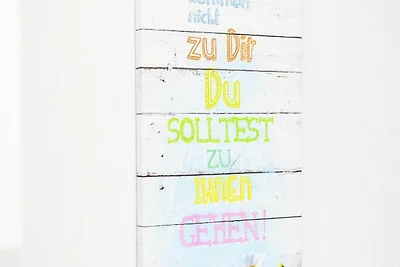 kommen
nicht
zu Dir
Du
SOLLTEST
ZU
IHNEN
GEHEN!